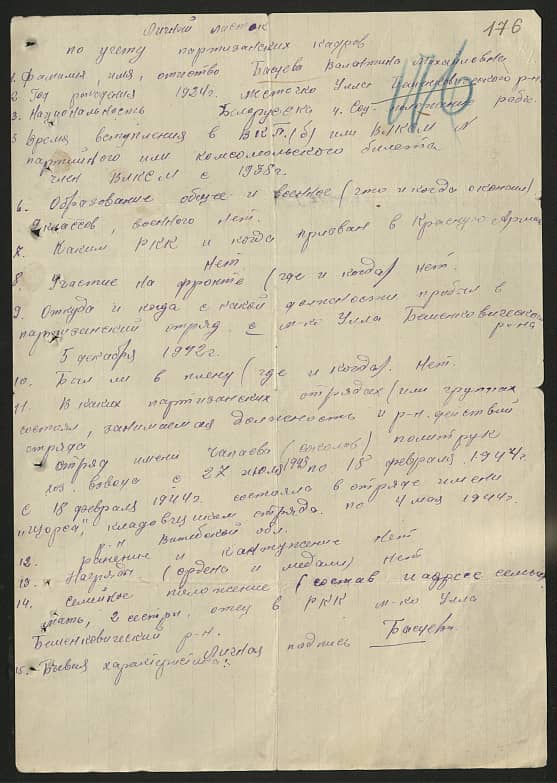 176
Личный листок
по учету партизанских кадров
1. Фамилия, имя, отчество Валентина Михайловна
2. Год рождения 1924г. местечко Улла Бешенковического р-н
3. Национальность Белоруска 4. Соц. положение рабоч.
176
5 Время вступления в В.К.П.(б) или ВЛКСМ N
партийного или комсомольского билета
член ВЛКСМ с 1938г.
6. Образование общее и военное (что и когда окончил)
9 классов, военного нет.
7. Каким РКК и когда призван в Красную Армию
Нет
8. Участие на фронте (где и когда) нет.
9. Откуда и когда с какой должности прибыл в
партизанский отряд с м-ко Улла Бешенковическ.
р-на
5 декабря 1942г.
10. Был ли в плену (где и когда). Нет.
11. В каких партизанских отрядах (или группах
состоял, занимаемая должность и р-н. действий
отряда
отряд имени Чапаева политрук
хоз. взвода с 27 июля 1943 по 18 февраля 1944г.
с 18 февраля 1944г. состояла в отряде имени
"Щорса", кладовщиком отряда. по 4 мая 1944г.
р-н Витебской обл.
12. ранение и контужение Нет
13. Награды (ордена и медали) Нет
14. Семейное положение (состав и адрес семьи)
мать, 2 сестры. отец в РКК м-ко Улла
Бешенковический р-н.
Личная подпись
15. Боевая характеристика: